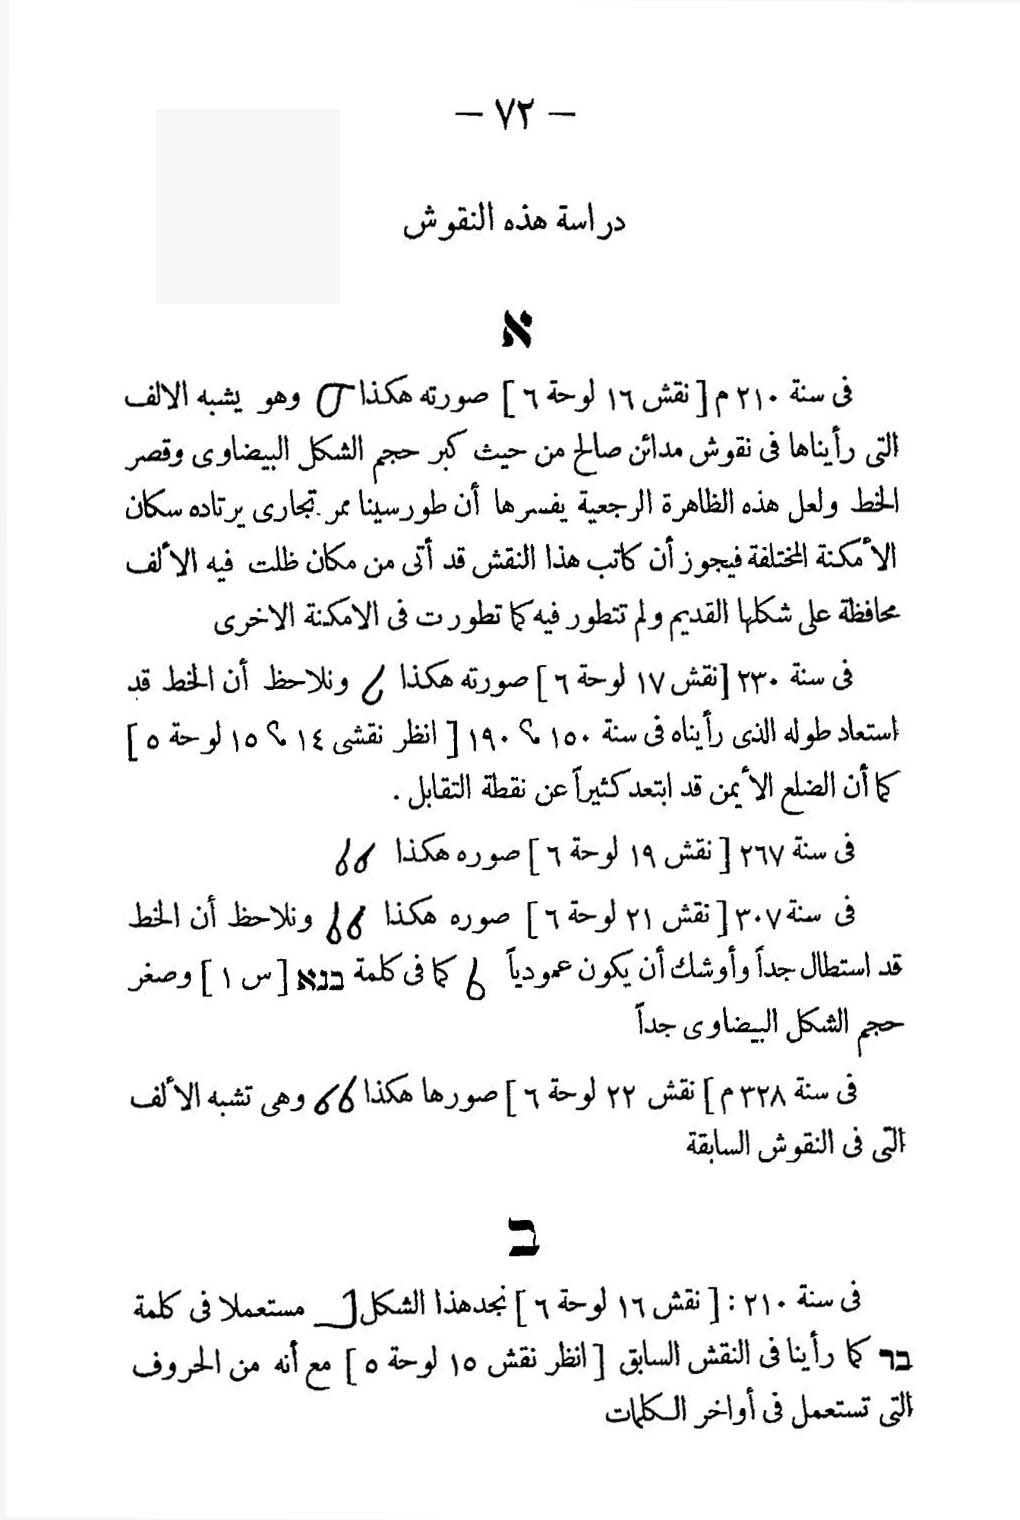 — ٧٢ —
دراسة هذه النقوش
א
فى سنة ٢١٠ م [ نقش ١٦ لوحة ٦ ] صورته هكذا وهو يشبه الالف
التى رأيناها فى نقوش مدائن صالح من حيث كبر حجم الشكل البيضاوى وقصر
الخط ولعل هذه الظاهرة الرجعية يفسرها أن طورسينا ممر تجارى يرتاده سكان
الأمكنة المختلفة فيجوز أن كاتب هذا النقش قد أتى من مكان ظلت فيه الألف
محافظة على شكلها القديم ولم تتطور فيه كما تطورت فى الامكنة الاخرى
فى سنة ٢٣٠ [نقش ١٧ لوحة ٦ ] صورته هكذا ونلاحظ أن الخط قد
استعاد طوله الذى رأيناه فى سنة ١٥٠ ؟ ١٩٠ [ انظر نقشى ١٤ ؟ ١٥ لوحة ٥ ]
كما أن الضلع الأيمن قد ابتعد كثيراً عن نقطة التقابل .
فى سنة ٢٦٧ [ نقش ١٩ لوحة ٦ ] صوره هكذا
فى سنة ٣٠٧ [ نقش ٢١ لوحة ٦ ] صوره هكذا ونلاحظ أن الخط
قد استطال جداً وأوشك أن يكون عمودياً كما فى كلمة בנא [ س ١ ] وصغر
حجم الشكل البيضاوى جداً
فى سنة ٣٢٨ م ] نقش ٢٢ لوحة ٦ ] صورها هكذا وهى تشبه الألف
التى فى النقوش السابقة
ב
فى سنة ٢١٠ : [ نقش ١٦ لوحة ٦ ] نجد هذا الشكل مستعملا فى كلمة
בר كما رأينا فى النقش السابق [ انظر نقش ١٥ لوحة ٥ ] مع أنه من الحروف
التى تستعمل فى أواخر الكلمات